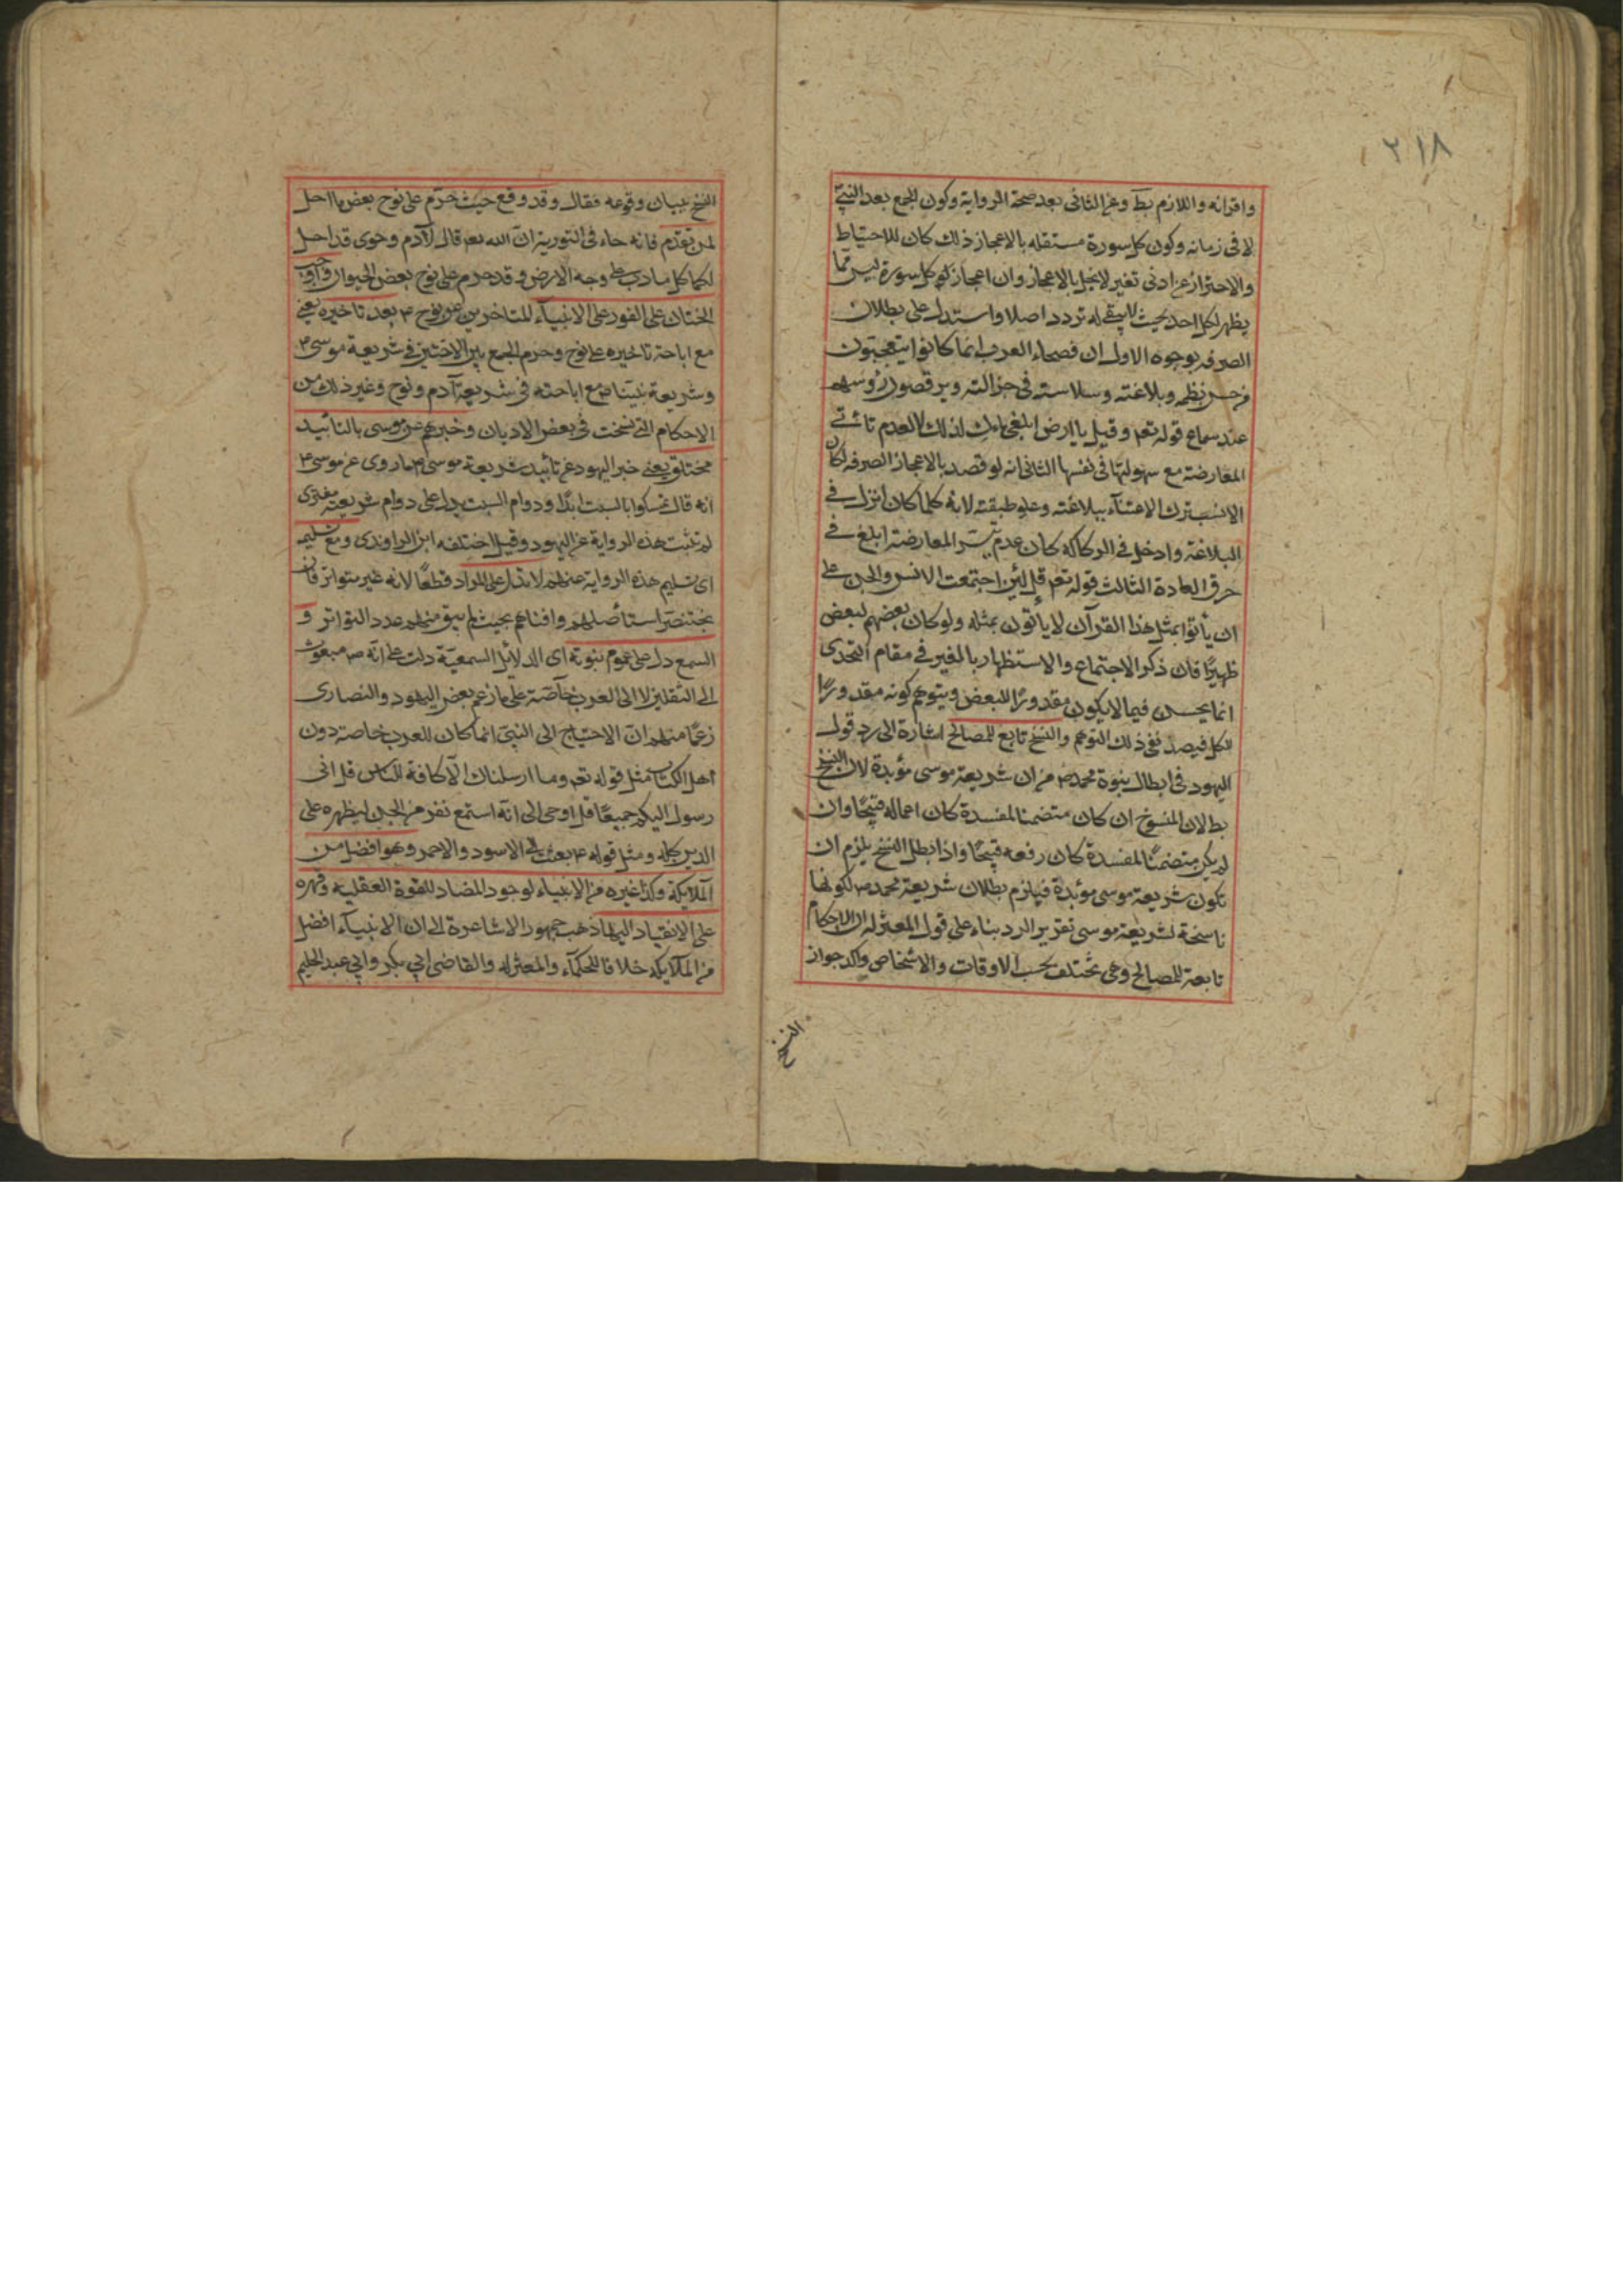 ٢١٨
واقرانه واللازم بط وعن الثانى بعد صحة الرواية وكون الجمع بعد النبى
لا فى زمانه وكون كل سورة مستقله بالاعجاز ذلك كان للاحتياط
والاحتراز عن ادنى تغير لا يخل بالاعجاز وان اعجاز كل سورة ليس مما
يظهر لكل احد بحيث لا يبقى له تردد اصلا واستدل على بطلان
الصرفه بوجوه الاول ان فصحاء العرب انما كانوا يتعجبون
من حسن نظمه وبلاغته وسلاسته فى جزالته ويرقصون رؤسهم
عند سماع قوله تعم وقيل يا ارض ابلعى ماءك لذلك لا لعدم تأتى
المعارضة مع سهولتها فى نفسها الثانى انه لو قصد بالاعجاز الصرفه لكان
الانسب ترك الاعتناء ببلاغته وعلو طبقته لانه كلما كان انزل فى
البلاغة وادخل فى الركاكه كان عدم تيسر المعارضة ابلغ فى
خرق العادة الثالث قوله تعم قل لئن اجتمعت الانس والجن على
ان يأتوا بمثل هذا القرآن لا يأتون بمثله ولو كان بعضهم لبعض
ظهيرًا فان ذكر الاجتماع والاستظهار بالغير فى مقام التحدى
انما يحسن فيما لا يكون مقدورًا للبعض ويتوهم كونه مقدورًا
للكل فيصد نفى ذلك التوهم والنسخ تابع للمصالح اشارة الى رد قول
اليهود فى ابطال نبوة محمد ص من ان شريعة موسى مؤبدة لان النسخ
بط لان المنسوخ ان كان متضمنا لمفسدة كان اعماله قبيحًا وان
لم يكن متضمنًا لمفسدة كان رفعه قبيحًا واذا بطل النسخ يلزم ان
تكون شريعة موسى مؤبدة فيلزم بطلان شريعة محمد ص لكونها
ناسخة لشريعة موسى تقرير الرد بناء على قول المعتزله ان الاحكام
تابعة للمصالح وهى تختلف بحسب الاوقات والاشخاص واكد جواز
النسخ
النسخ ببيان وقوعه فقال وقد وقع حيث حرّم على نوح بعض ما احل
لمن تقدم فانه جاء فى التورية ان الله تعم قال لآدم وحوى قد احل
لكما كل ما دب على وجه الارض وقد حرم على نوح بعض الحيوان واوجب
الختان على الفور على الانبياء المتاخرين عن نوح ع بعد تاخيره يعنى
مع اباحة تاخيره على نوح وحرم الجمع بين الاختين فى شريعة موسى ع
وشريعة نبينا ص مع اباحته فى شريعة آدم ونوح وغير ذلك من
الاحكام التى نسخت فى بعض الاديان وخبرهم عن موسى بالتأبيد
مختلق يعنى خبر اليهود عن تأبيد شريعة موسى ع ما روى عن موسى ع
انه قال تمسكوا بالسبت ابدًا ودوام السبت يدل على دوام شريعته مفترى
لم تثبت هذه الرواية عن اليهود وقيل اختلقه ابن الراوندى ومع تسليمه
اى تسليم هذه الرواية عنهم لا تدل على المراد قطعًا لانه غير متواتر فان
بختنصر استأصلهم وافناهم بحيث لم يبق منهم عدد التواتر و
السمع دل على عموم نبوته اى الدلائل السمعية دلت على انه ص مبعوث
الى الثقلين لا الى العرب خاصة على ما زعم بعض اليهود والنصارى
زعمًا منهم ان الاحتياج الى النبى انما كان للعرب خاصة دون
اهل الكتاب مثل قوله تعم وما ارسلناك الا كافة للناس قل انى
رسول اليكم جميعًا قل اوحى الى انه استمع نفر من الجن ليظهره على
الدين كله ومثل قوله ع بعثت الى الاسود والاحمر وهو افضل من
الملايكة وكذا غيره من الانبياء لوجود المضاد للقوة العقلية وقهره
على الانقياد اليها ذهب جمهور الاشاعرة الى ان الانبياء افضل
من الملايكه خلافا للحكماء والمعتزله والقاضى ابى بكر وابى عبد الحليم